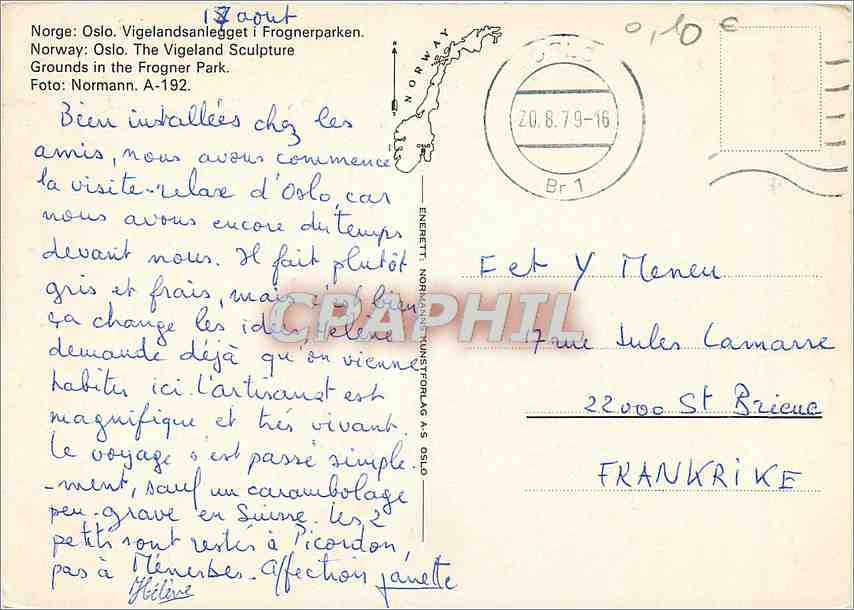 18 aout
Norge: Oslo. Vigelandsanlegget i Frognerparken.
Norway: Oslo. The Vigeland Sculpture
Grounds in the Frogner Park.
Foto: Normann. A-192.
Bien installées chez les
amis, nous avons commencé
la visite-relaxe d'Oslo, car
nous avons encore du temps
devant nous. Il fait plutôt
gris et frais, mais c'est bien
ça change les idées, Hélène
demande déjà qu'on vienne
habiter ici. L'artisanat est
magnifique et très vivant.
Le voyage s'est passé simple-
-ment, sauf un carambolage
peu-grave en Suisse. Les 2
petits sont restés à Picordon,
pas à Ménerbes. Affection Janette
Hélène
NORWAY
ENERETT: NORMANNS KUNSTFORLAG A-S OSLO
OSLO
20.8.79-16
Br 1
0,10 €
F et Y Meneu
7 rue Jules Lamarre
22000 St Brieuc
FRANKRIKE
CPAPHIL